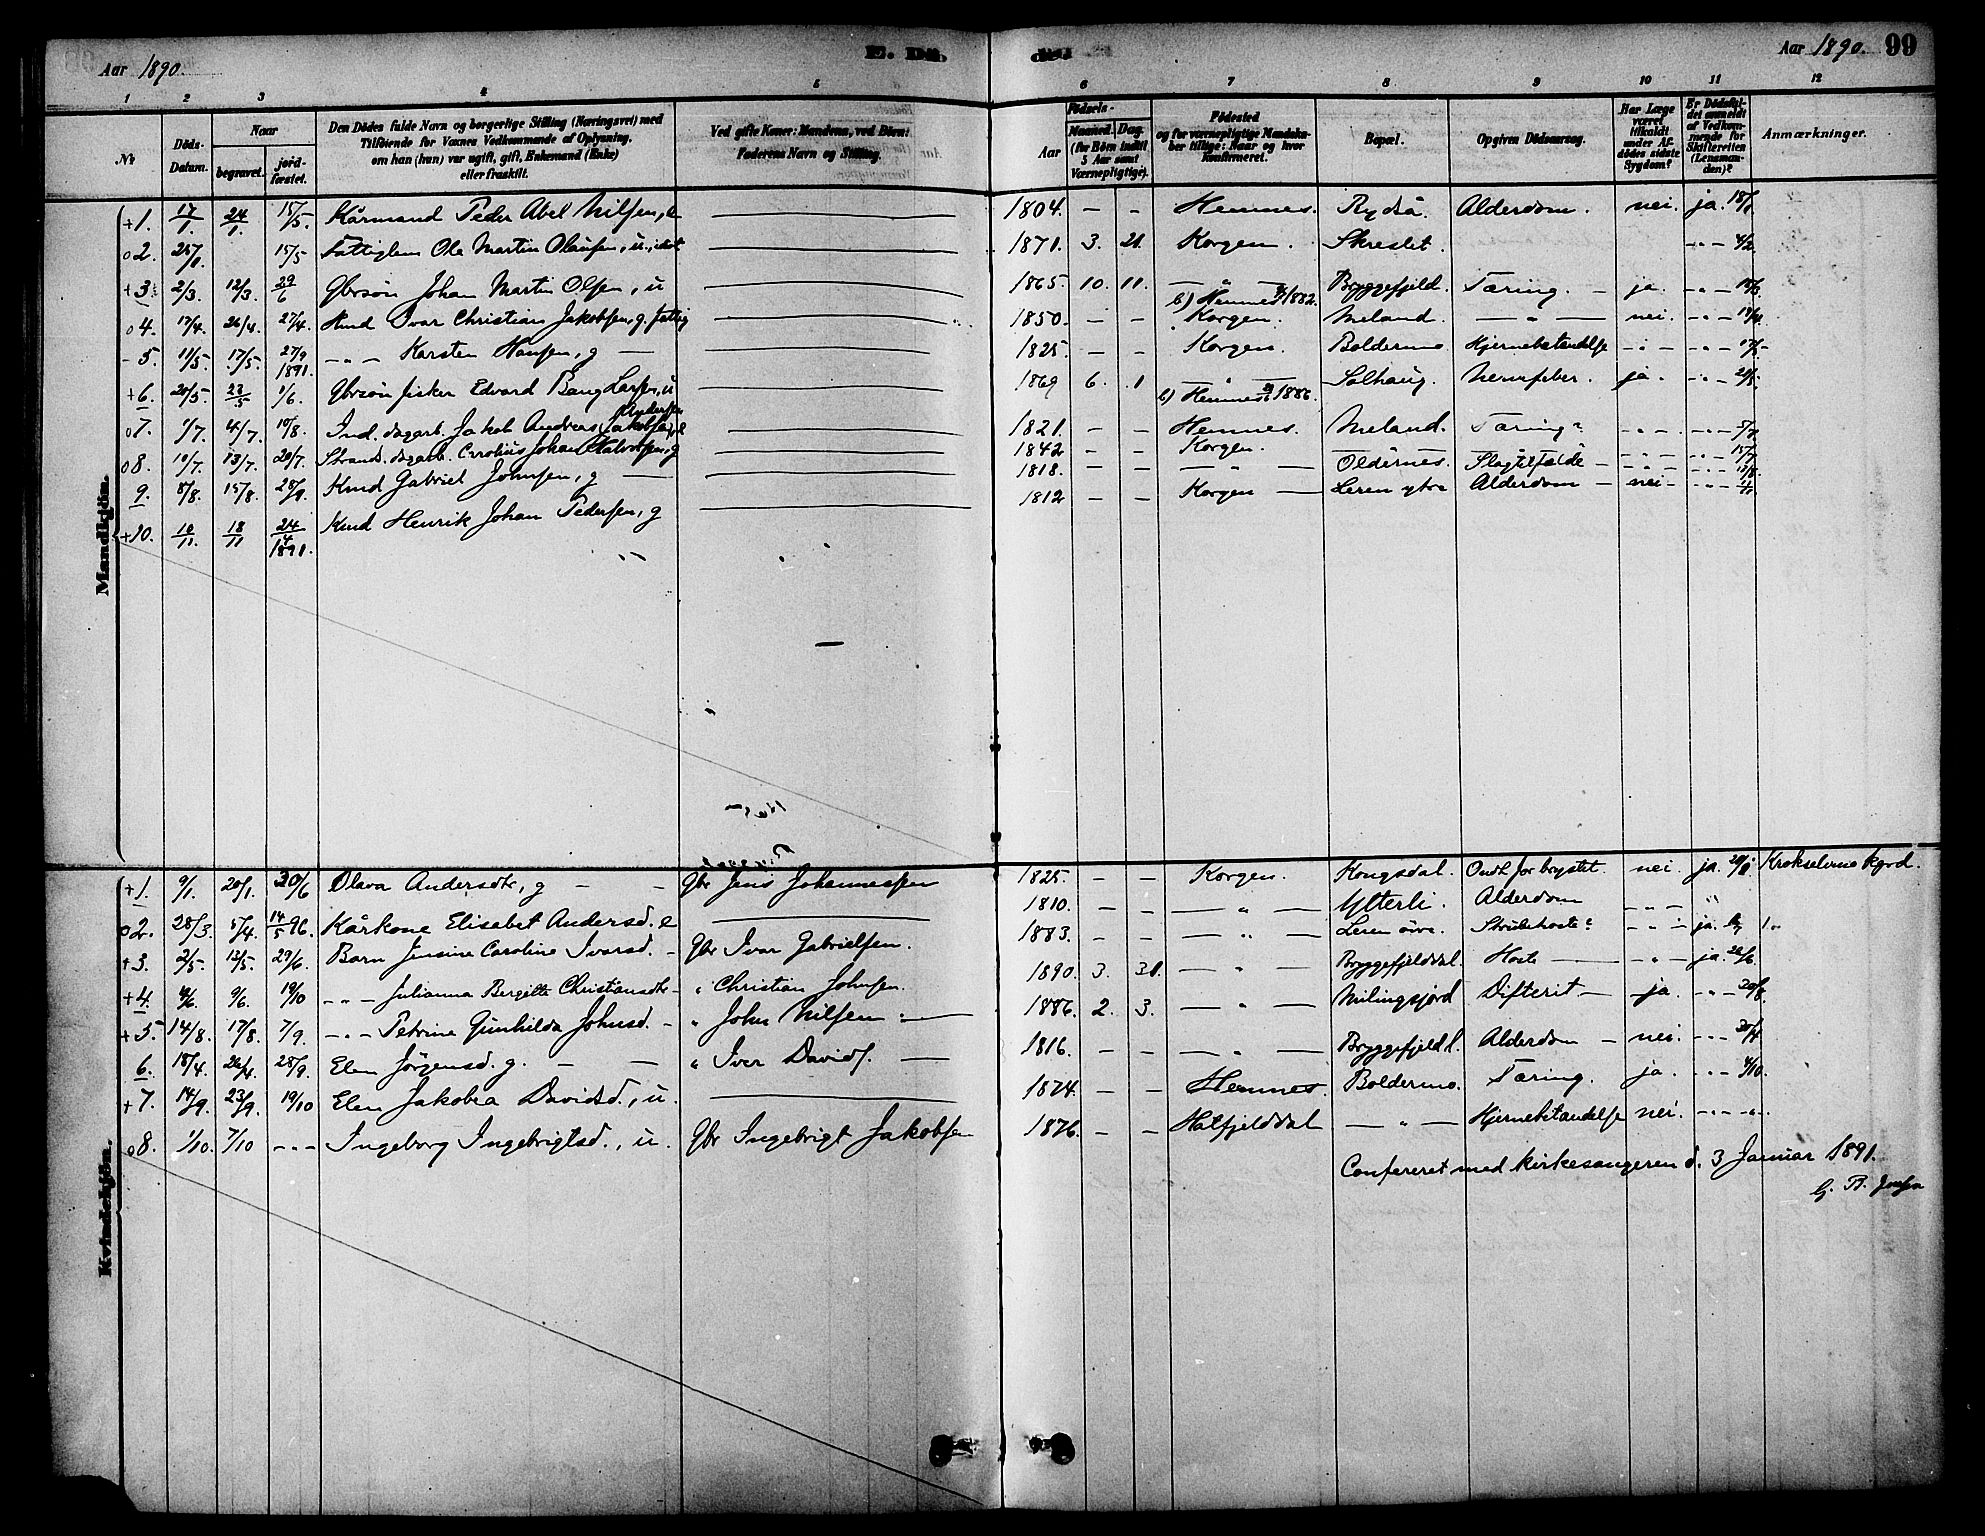 Aar 1890.
E. Dö
de.
Aar 1890. 99
1 2 3 4 5 6 7 8 9 10 11 12
No
Döds-Datum.
Naar
begravet.
jord-fæstet.
Den Dödes fulde Navn og borgerlige Stilling (Næringsvei) med
Tilföiende for Voxnes Vedkommende af Oplysning,
om han (hun) var ugift, gift, Enkemand (Enke)
eller fraskilt.
Ved gifte Koner: Mandens, ved Börn:
Faderens Navn og Stilling.
Födsels-
Aar
Maaned. Dag.
(for Börn indtil
5 Aar samt
Værnepligtige).
Födested
og for værnepligtige Mandskaber tillige: Naar og hvor
konfirmeret.
Bopæl.
Opgiven Dödsaarsag.
Har Læge
været
tilkaldt
under Afdödes sidste
Sygdom?
Er Dödsfaldet anmeldt
af Vedkommende for
Skifteretten
(Lensmanden)?
Anmærkninger.
Mandkjön.
+1. 17/1. 24/1 15/5. Kårmand Peder Abel Nilsen, e 1804. – – Hemnes. Rydså. Alderdom. nei. ja. 18/1
o2. 25/1. 15/5 Fattiglem Ole Martin Olausen, u., idiot 1871. 3. 21. Korgen. Skreslet. – " – 4/2
+3. 2/3. 12/3. 29/6 Gbrsön Johan Martin Olsen, u 1865. 10. 11. – " – Bryggefjeld. Tæring. – ja. – " –
b) Hemnes 1882.
o4. 17/4. 26/4. 27/4. Kmd Ivar Christian Jakobsen, g. fattig 1850. – – Korgen. Meland. – " – nei. – " –
- 5. 11/5. 17/5. 27/9 1891. – " – Karsten Hansen, g 1825. – – Korgen. Boldermo Hjernebetændelse – " – – " – 17/5
+6. 20/5. 23/5 1/6. Gbrsön fisker Edvard Bang Larsen, u 1869 6. 1 – " – Solhaug. Nervefeber. ja. – " –
b) Hemnes 1886.
o7. 1/7. 4/7. 10/8. Ind. dagarb. Jakob Andreas Jakobsen, e 1821. – – Hemnes. Meland. Tæring? – " – – " – 5/7
Andersen
o8. 10/7. 13/7. 20/7. Strands. dagarb. Carolius Johan Halvorsen, g 1842 – – Korgen. – " – – " – – " – 15/7
9. 8/8. 15/8. 28/9. Kmd Gabriel Johnsen, g 1818. – – – " – Oldernes. Slagtilfælde – – " – – " –
+10. 10/11. 18/11 24/4 1891. Kmd Henrik Johan Pedersen, g 1812 – – Korgen Leren ytre Alderdom – nei – – " –
Kvindekjön.
+1. 9/1. 20/1. 30/6 Olava Andersdtr, g – – Gbr Jens Johannessen 1825. – – Korgen. Kongsdal. Ondt for brystet. nei. ja. Krokselvmo kgrd.
o2. 28/3. 5/4. 14/5 96. Kårkone Elisabet Andersd. e 1810. – – – " – Ytterli. Alderdom – " –
+3. 2/5. 13/5. 29/6. Barn Jensine Caroline Ivarsd. – Gbr Ivar Gabrielsen. 1883. – – – " – Leren övre. Strubehoste? – " – ja.
+4. 4/6. 9/6. 19/10 – " – Julianna Bergitte Christiansdtr – " Christian Johnsen. 1890. 3. 31. – " – Bryggefjelddal. Hoste – " – ja. 26/6
+5. 14/8. 17/8. 7/9. – " – Petrine Gunhilda Johnsd. – " John Nilsen 1886. 2. 3. – " – Nilingsjord Difterit – ja. – " – 20/8
6. 18/4. 26/4. 28/9. Elen Jörgensd. g. – – " Iver Davids. 1816. – – – " – Bryggefjeldl. Alderdom – nei. – " –
+7. 14/9. 23/9. 19/10 Elen Jakobea Davidsd., u. 1874. – – Hemnes. Boldermo. Tæring. ja. – " – 4/10
o8. 1/10. 7/10 – " – Ingeborg Ingebrigtsd., u. Gbr Ingebrigt Jakobsen 1876. – – Hatfjelddal – " – Hjernebetændelse nei. – " – – " –
Confereret med kirkesangeren d. 3 Januar 1891.